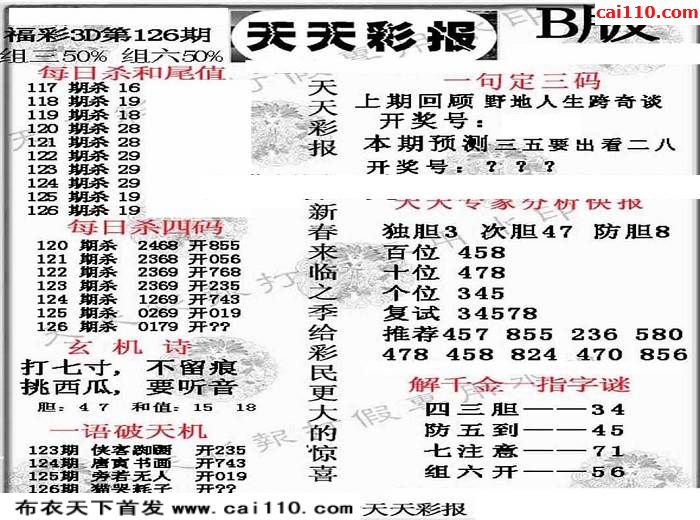 福彩3D第126期
组三50% 组六50%
天天彩报
B版
cai110.com
每日杀和尾值
117 期杀 16
118 期杀 19
119 期杀 18
120 期杀 28
121 期杀 28
122 期杀 29
123 期杀 29
124 期杀 29
125 期杀 19
126 期杀 19
每日杀四码
120 期杀 2468 开855
121 期杀 2368 开056
122 期杀 2369 开768
123 期杀 2369 开235
124 期杀 1269 开743
125 期杀 0269 开019
126 期杀 0179 开??
玄机诗
打七寸,不留痕
挑西瓜,要听音
胆:47 和值:15 18
一语破天机
123期 侠客踟蹰 开235
124期 唐寅书画 开743
125期 旁若无人 开019
126期 猫哭耗子 开??
天天彩报
新春来临之季给彩民更大的惊喜
一句定三码
上期回顾 野地人生跨奇谈
开奖号:
本期预测 三五要出看二八
开奖号:???
天天专家分析快报
独胆3 次胆47 防胆8
百位 458
十位 478
个位 345
复试 34578
推荐457 855 236 580
478 458 824 470 856
解千金一指字谜
四三胆——34
防五到——45
七注意——71
组六开——56
布衣天下首发 www.cai110.com 天天彩报